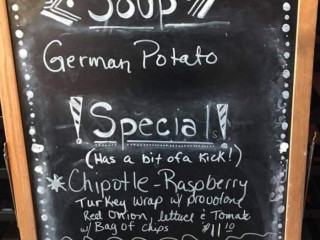 Soup
German Potato
! Specials !
(Has a bit of a kick!)
* Chipotle-Raspberry
Turkey wrap w/ provolone
Red Onion, lettuce & Tomato
w/ Bag of chips $11.10